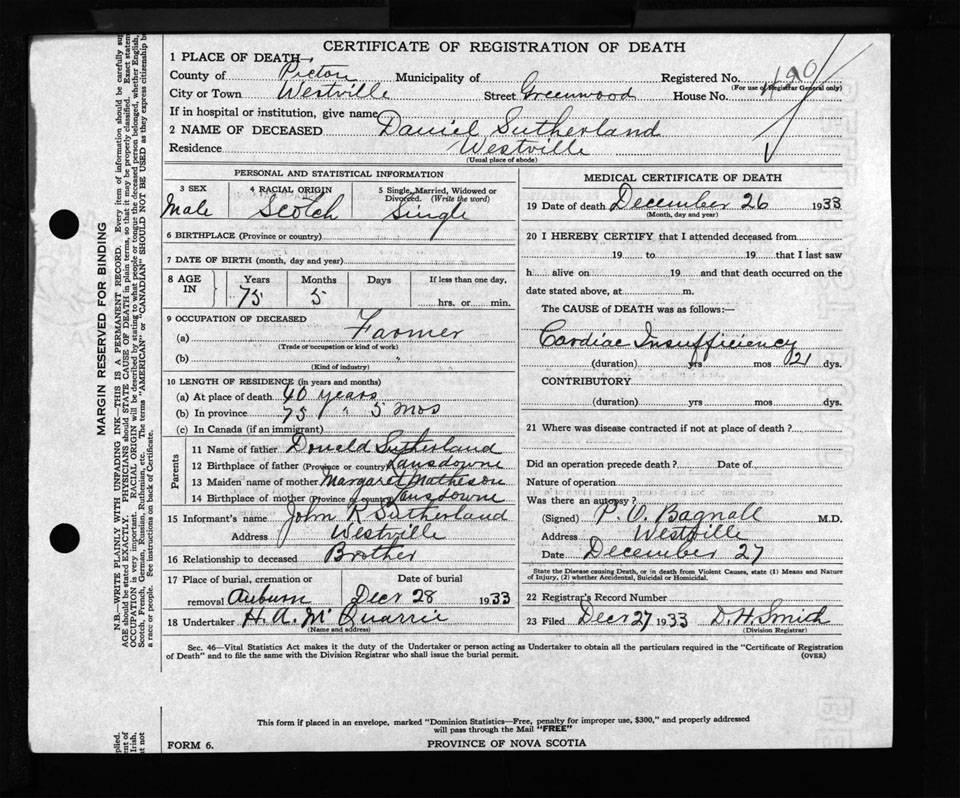 CERTIFICATE OF REGISTRATION OF DEATH
1 PLACE OF DEATH
County of Pictou Municipality of Registered No. 190
(For use of Registrar General only)
City or Town Westville Street Greenwood House No.
If in hospital or institution, give name
2 NAME OF DECEASED Daniel Sutherland
Residence Westville
(Usual place of abode)
PERSONAL AND STATISTICAL INFORMATION
3 SEX 4 RACIAL ORIGIN 5 Single, Married, Widowed or Divorced. (Write the word)
Male Scotch Single
6 BIRTHPLACE (Province or country)
7 DATE OF BIRTH (month, day and year)
8 AGE IN Years Months Days If less than one day,
75 5 hrs. or min.
9 OCCUPATION OF DECEASED
(a) Farmer
(Trade or occupation or kind of work)
(b) "
(Kind of industry)
10 LENGTH OF RESIDENCE (in years and months)
(a) At place of death 40 years
(b) In province 75 " 5 mos
(c) In Canada (if an immigrant)
Parents
11 Name of father Donald Sutherland
12 Birthplace of father (Province or country) Lansdowne
13 Maiden name of mother Margaret Matheson
14 Birthplace of mother (Province or country) Lansdowne
15 Informant's name John R Sutherland
Address Westville
16 Relationship to deceased Brother
17 Place of burial, cremation or removal Auburn Date of burial Decr 28 1933
18 Undertaker H. A. Mc Quarrie
(Name and address)
MEDICAL CERTIFICATE OF DEATH
19 Date of death December 26 1933
(Month, day and year)
20 I HEREBY CERTIFY that I attended deceased from
19 to 19 that I last saw
h alive on 19 and that death occurred on the
date stated above, at m.
The CAUSE of DEATH was as follows:—
Cardiac Insufficiency
(duration) yrs mos 21 dys.
CONTRIBUTORY
(duration) yrs mos. dys.
21 Where was disease contracted if not at place of death?
Did an operation precede death? Date of
Nature of operation
Was there an autopsy?
(Signed) P. O. Bagnall M.D.
Address Westville
Date December 27
State the Disease causing Death, or in death from Violent Causes, state (1) Means and Nature of Injury, (2) whether Accidental, Suicidal or Homicidal.
22 Registrar's Record Number
23 Filed Decr 27 1933 D. H. Smith
(Division Registrar)
Sec. 46—Vital Statistics Act makes it the duty of the Undertaker or person acting as Undertaker to obtain all the particulars required in the "Certificate of Registration
of Death" and to file the same with the Division Registrar who shall issue the burial permit. (OVER)
This form if placed in an envelope, marked "Dominion Statistics—Free, penalty for improper use, $300," and properly addressed
will pass through the Mail "FREE"
FORM 6. PROVINCE OF NOVA SCOTIA
MARGIN RESERVED FOR BINDING
N.B.—WRITE PLAINLY WITH UNFADING INK—THIS IS A PERMANENT RECORD. Every item of information should be carefully sup
plied. AGE should be stated EXACTLY. PHYSICIANS should STATE CAUSE OF DEATH in plain terms, so that it may be properly classified. Exact statem
ent of OCCUPATION is very important. RACIAL ORIGIN will be described by stating to what people or tongue the deceased person belonged, whether English,
Irish, Scotch, French, German, Russian, Ruthenian, etc. The terms "AMERICAN" or "CANADIAN" SHOULD NOT BE USED as they express citizenship b
ut not a race or people. See instructions on back of Certificate.